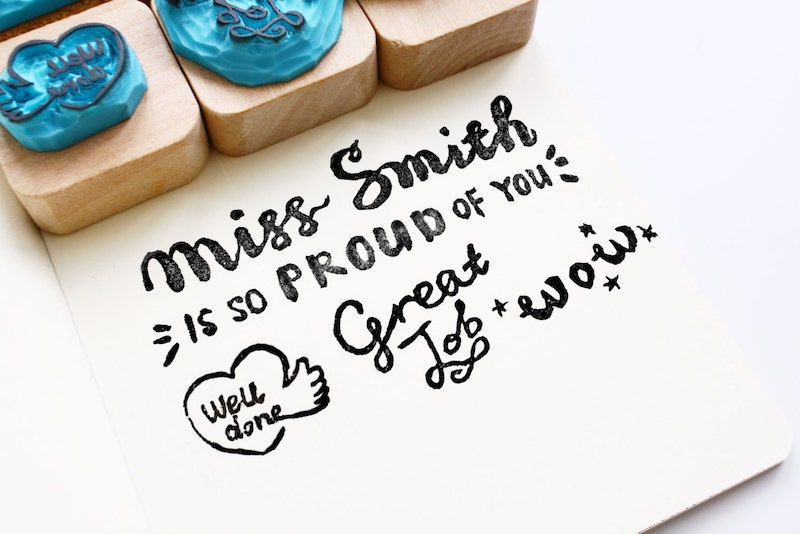 Miss Smith
IS SO PROUD OF YOU
Great
Job
wow
Well
done